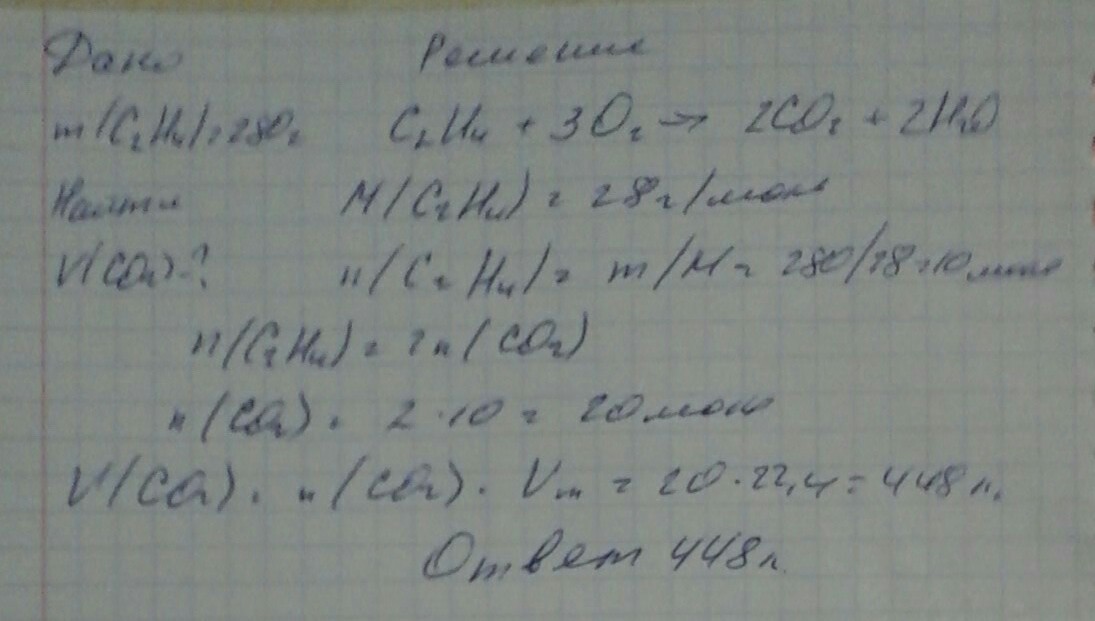 Дано Решение
m(C₂H₄)=280г C₂H₄ + 3O₂ → 2CO₂ + 2H₂O
Найти M(C₂H₄) = 28г/моль
V(CO₂)-? n(C₂H₄) = m/M = 280/28=10 моль
n(C₂H₄) = 2n(CO₂)
n(CO₂) = 2·10 = 20 моль
V(CO₂) = n(CO₂) · Vm = 20·22,4 = 448 л.
Ответ 448 л.